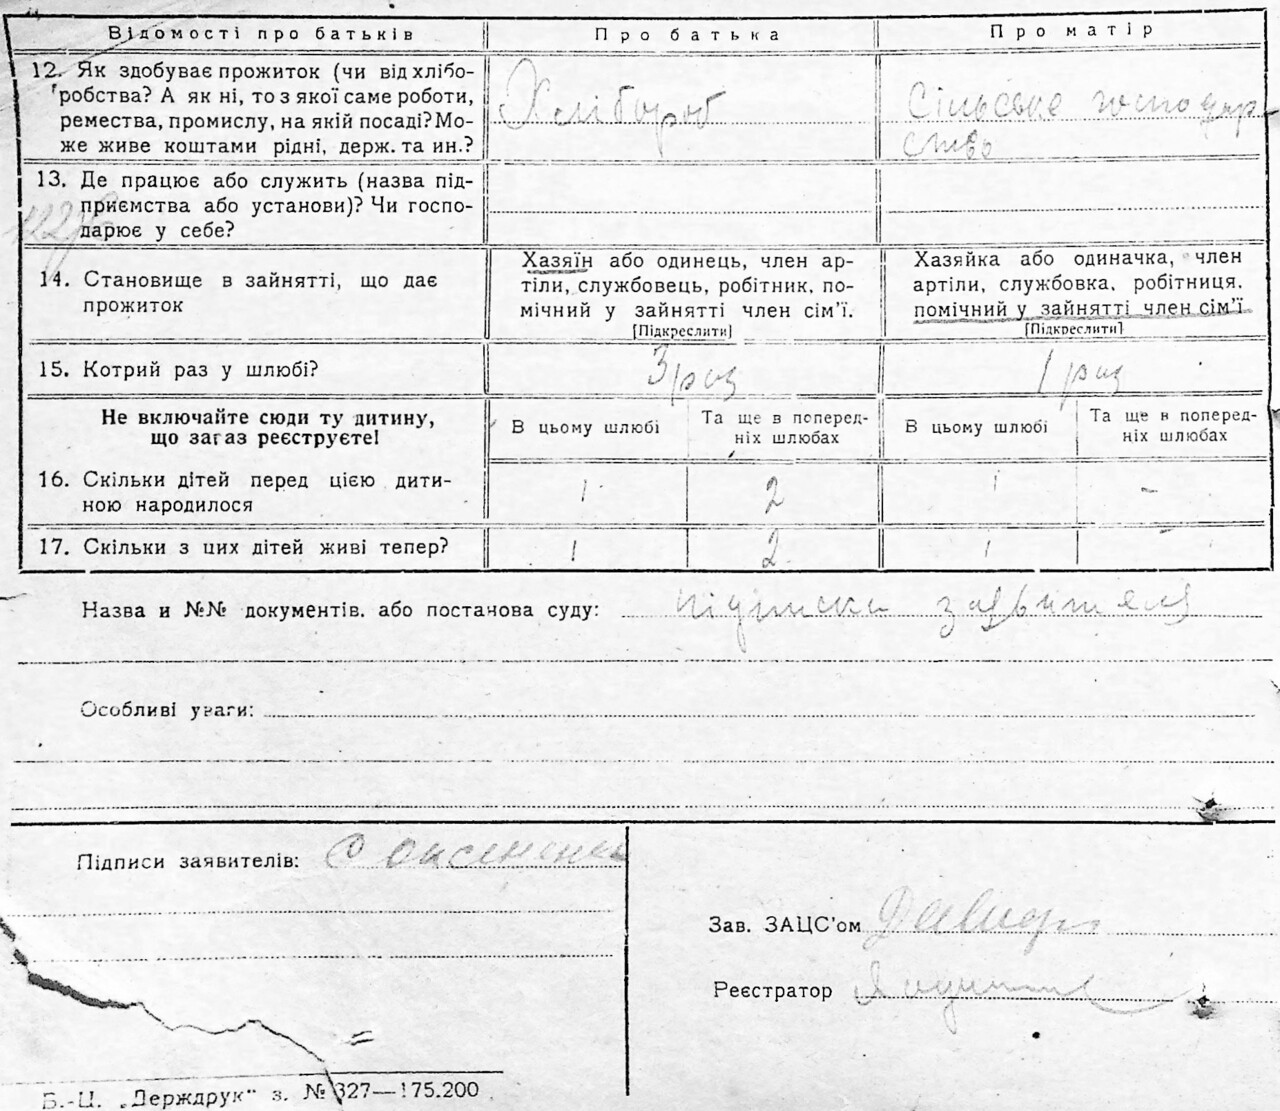 Відомості про батьків Про батька Про матір
12. Як здобуває прожиток (чи від хлібо-
робства? А як ні, то з якої саме роботи,
ремества, промислу, на якій посаді? Мо-
же живе коштами рідні, держ. та ин.?
Хлібороб
Сільське господар
ство
13. Де працює або служить (назва під-
приємства або установи)? Чи госпо-
дарює у себе?
14. Становище в зайнятті, що дає
прожиток
Хазяїн або одинець, член ар-
тіли, службовець, робітник, по-
мічний у зайнятті член сім’ї.
[Підкреслити]
Хазяйка або одиначка, член
артіли, службовка, робітниця.
помічний у зайнятті член сім’ї
[Підкреслити]
15. Котрий раз у шлюбі? 3 раз 1 раз
Не включайте сюди ту дитину,
що загаз реєструєте!
В цьому шлюбі
Та ще в поперед-
ніх шлюбах
В цьому шлюбі
Та ще в поперед-
ніх шлюбах
16. Скільки дітей перед цією дити-
ною народилося
1 2 1 -
17. Скільки з цих дітей живі тепер? 1 2 1 -
Назва и №№ документів. або постанова суду: підписка заявителя
Особливі уваги:
Підписи заявителів:
Зав. ЗАЦС’ом
Реєстратор
Б.-Ц. „Держдрук“ з. № 327—175.200